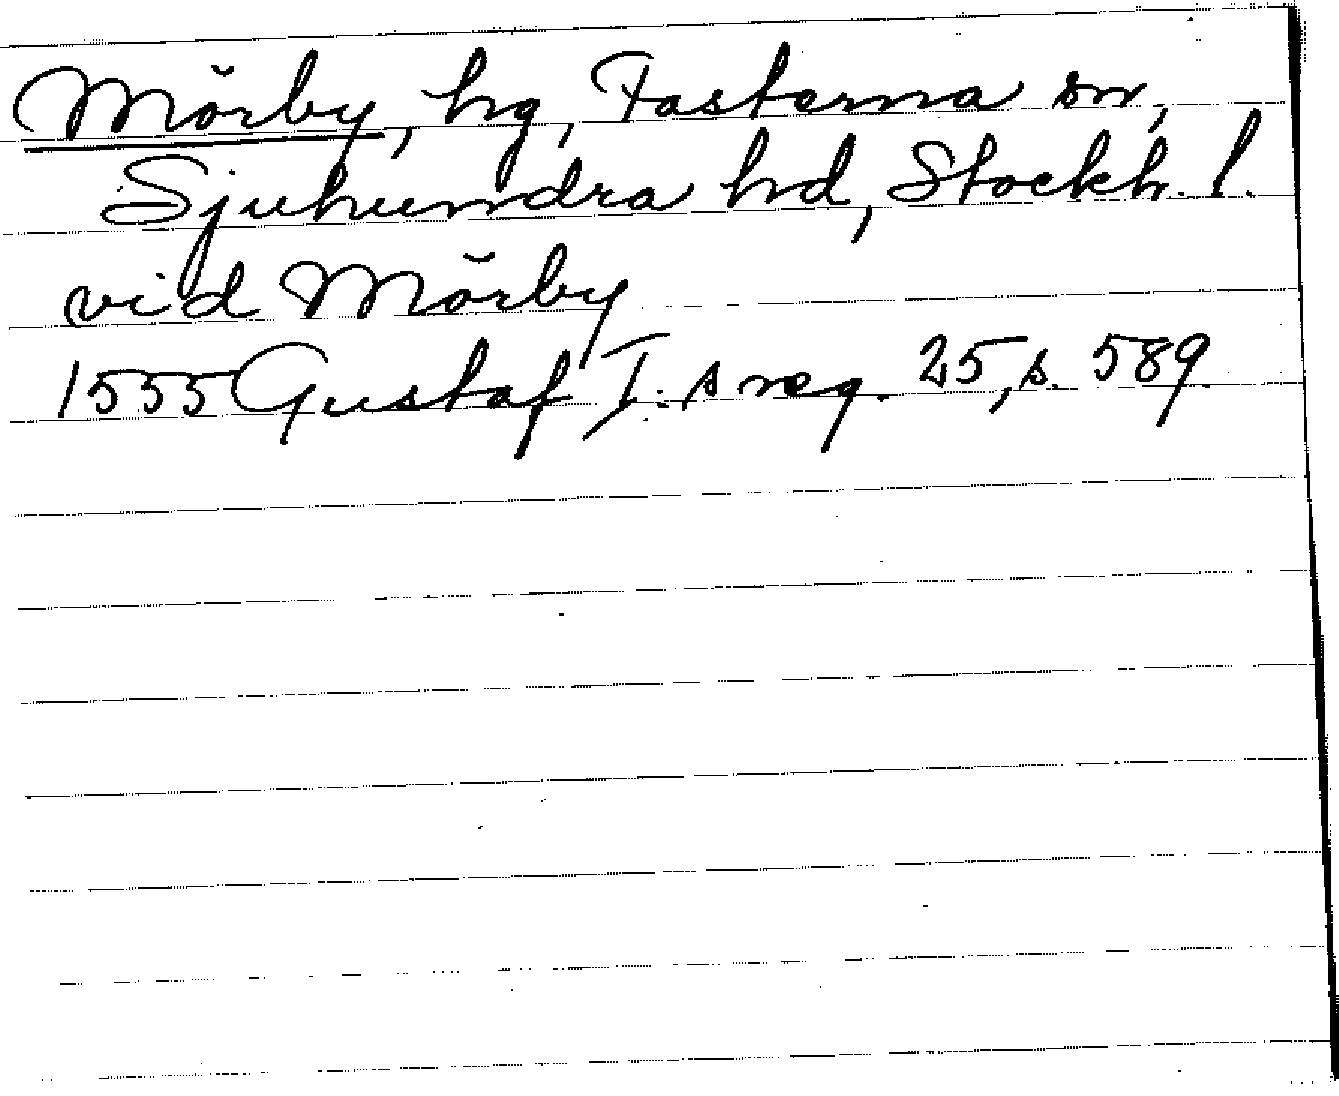 Mörby, hg, Fasterna sn,
Sjuhundra hd, Stockh. l.
vid Mörby
1555 Gustaf I:s reg. 25, s. 589.